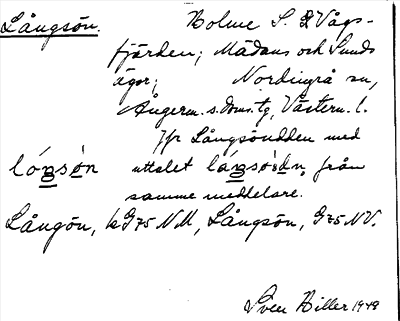 Långsön. Holme S. Vågs-
fjärden; Mädans och Sunds
ägor; Nordingrå sn,
Ångerm. s. doms. tg, Västern. l.
Jfr Långsöudden med
lóŋsøn uttalet låŋsødn, från
samme meddelare.
Långön, kG75 NM, Långsön, G75 NV.
Sven Hiller 1948